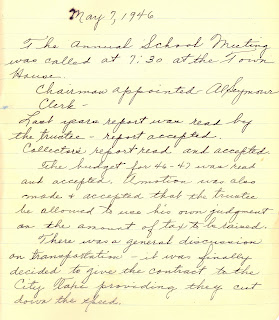 May 7, 1946
The Annual School Meeting
was called at 7:30 at the Town
House.
Charman appointed Al Seymour
Clerk -
Last years report was read by
the trustee - report accepted.
Collectors report read and accepted.
The budget for 46-47 was read
and accepted. A motion was also
made & accepted that the trustee
be allowed to use his own judgment
on the amount of tax to be raised.
There was a general discussion
on transportation - it was finally
decided to give the contract to the
City providing they cut
down the speed.